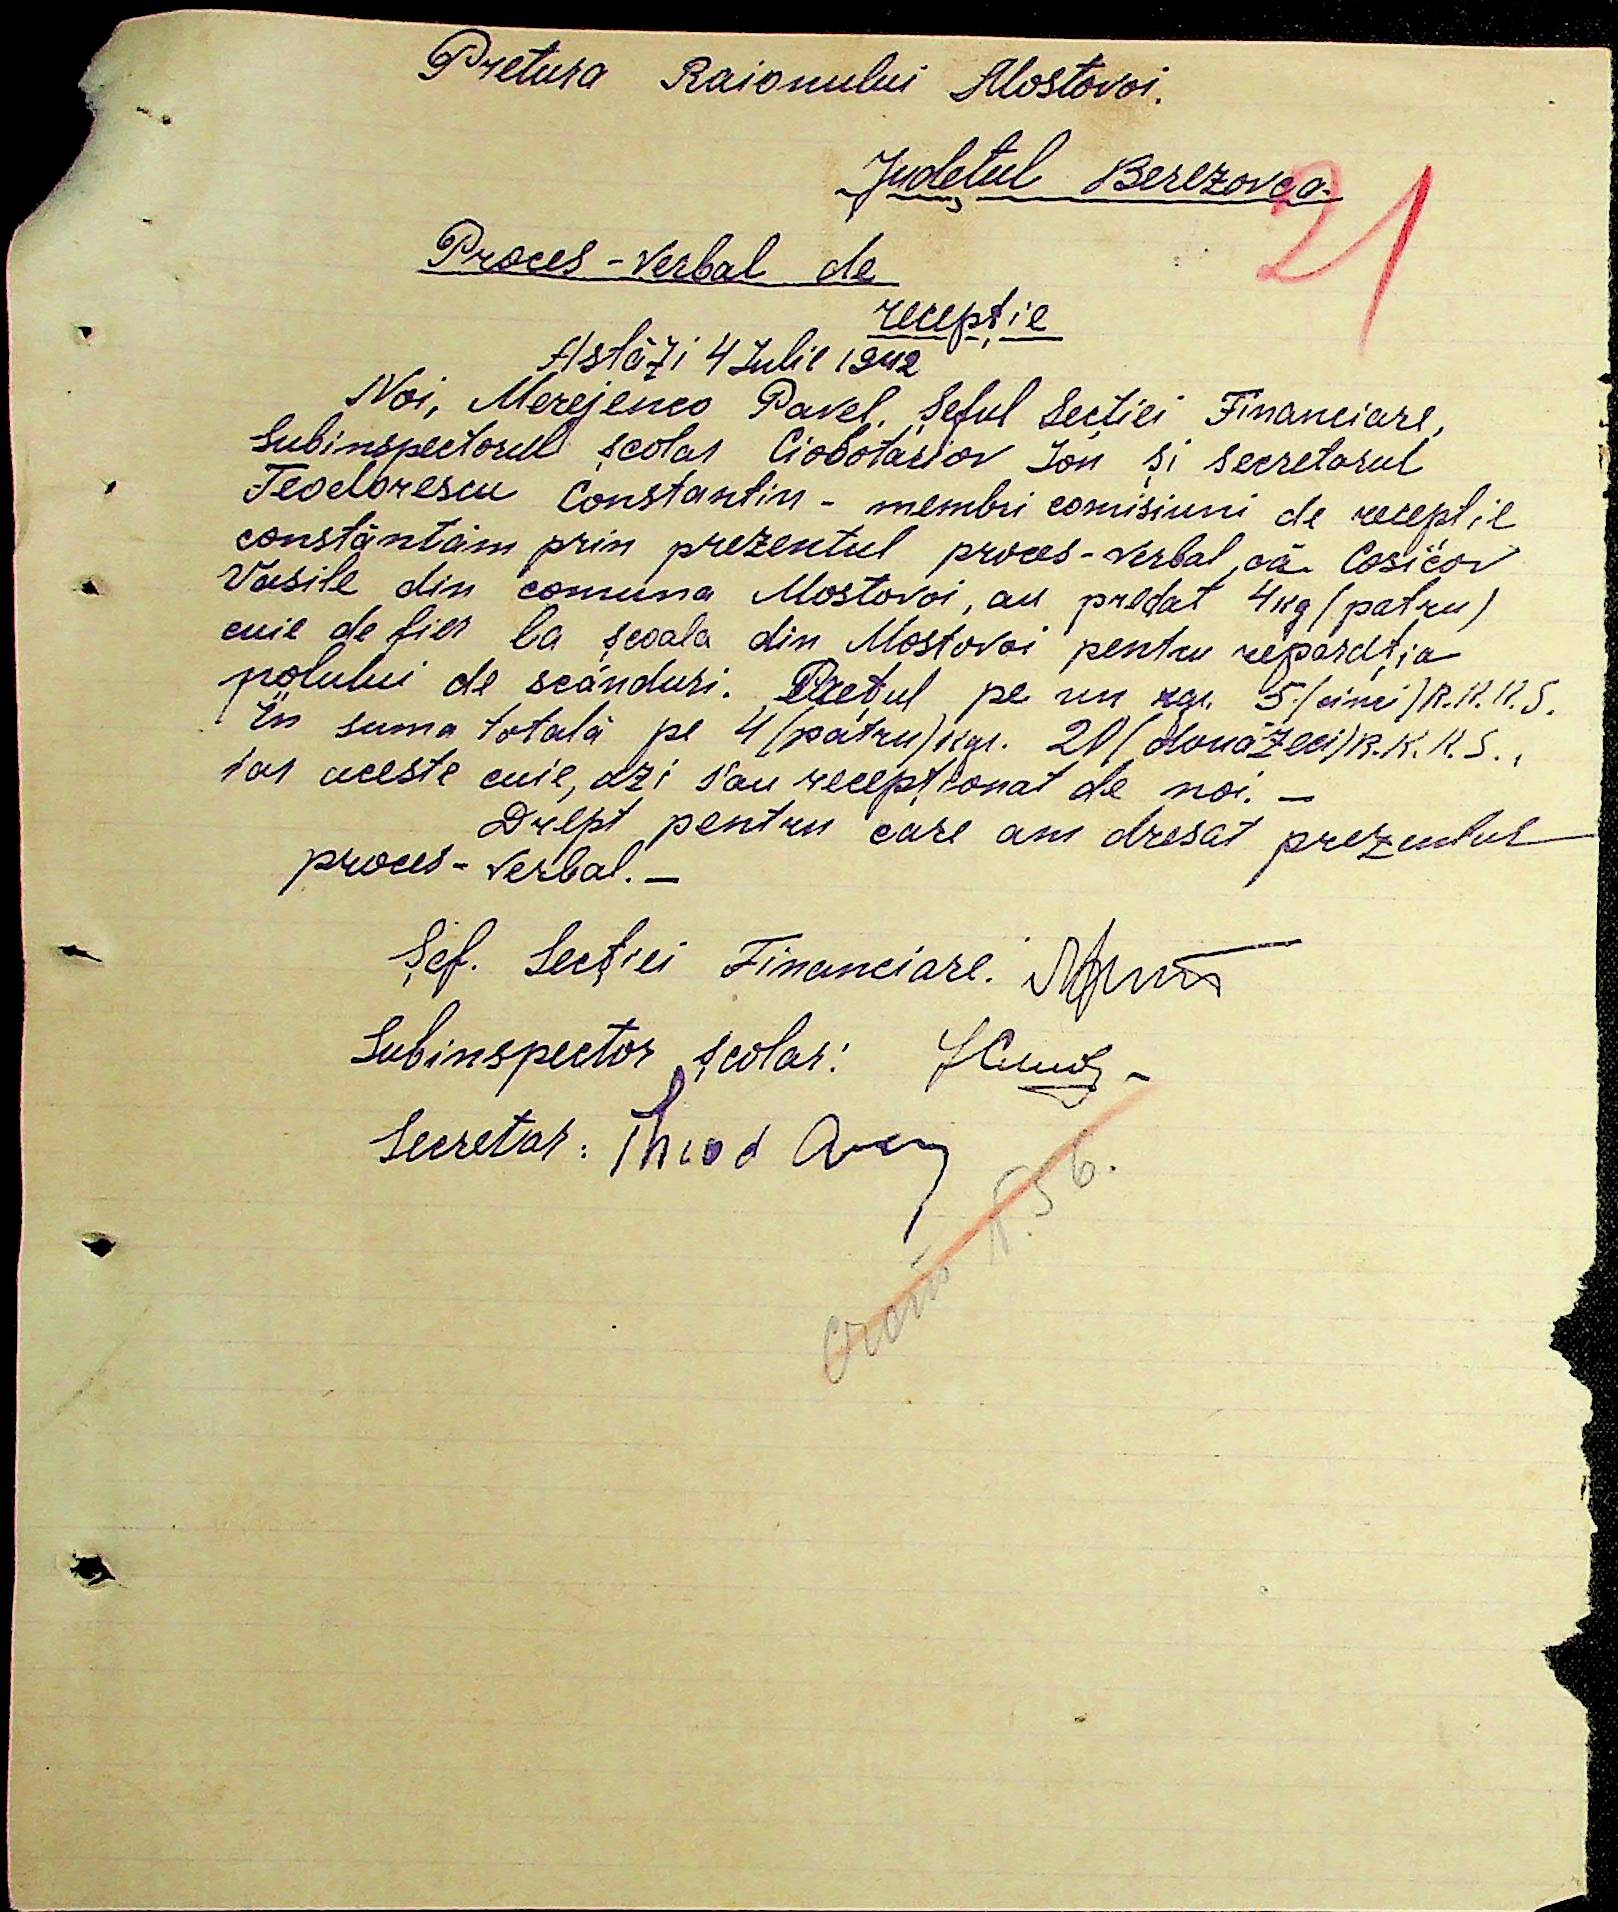 Pretura Raionului Mostovoi.
Județul Berezovca.
21
Proces-Verbal de
recepție
Astăzi 4 Iulie 1942
Noi, Merejenco Pavel, Șeful Secției Financiare,
Subinspectorul școlar Ciobotariov Ion și secretarul
Teodorescu Constantin - membri comisiuni de recepție
constântâm prin prezentul proces-verbal, că Cosicov
Vasile din comuna Mostovoi, au predat 4 kg (patru)
cuie de fier la școala din Mostovoi pentru reparația
polului de scânduri. Prețul pe un kgr. 5 (cinci) R.K.K.S.
În suma totală pe 4 (patru) kgr. 20 (douăzeci) R.K.K.S.,
iar aceste cuie, azi s'au recepționat de noi. —
Drept pentru care am dresat prezentul
proces-verbal. —
Șef. Secției Financiare.
Subinspector școlar:
Secretar:
N. 56.